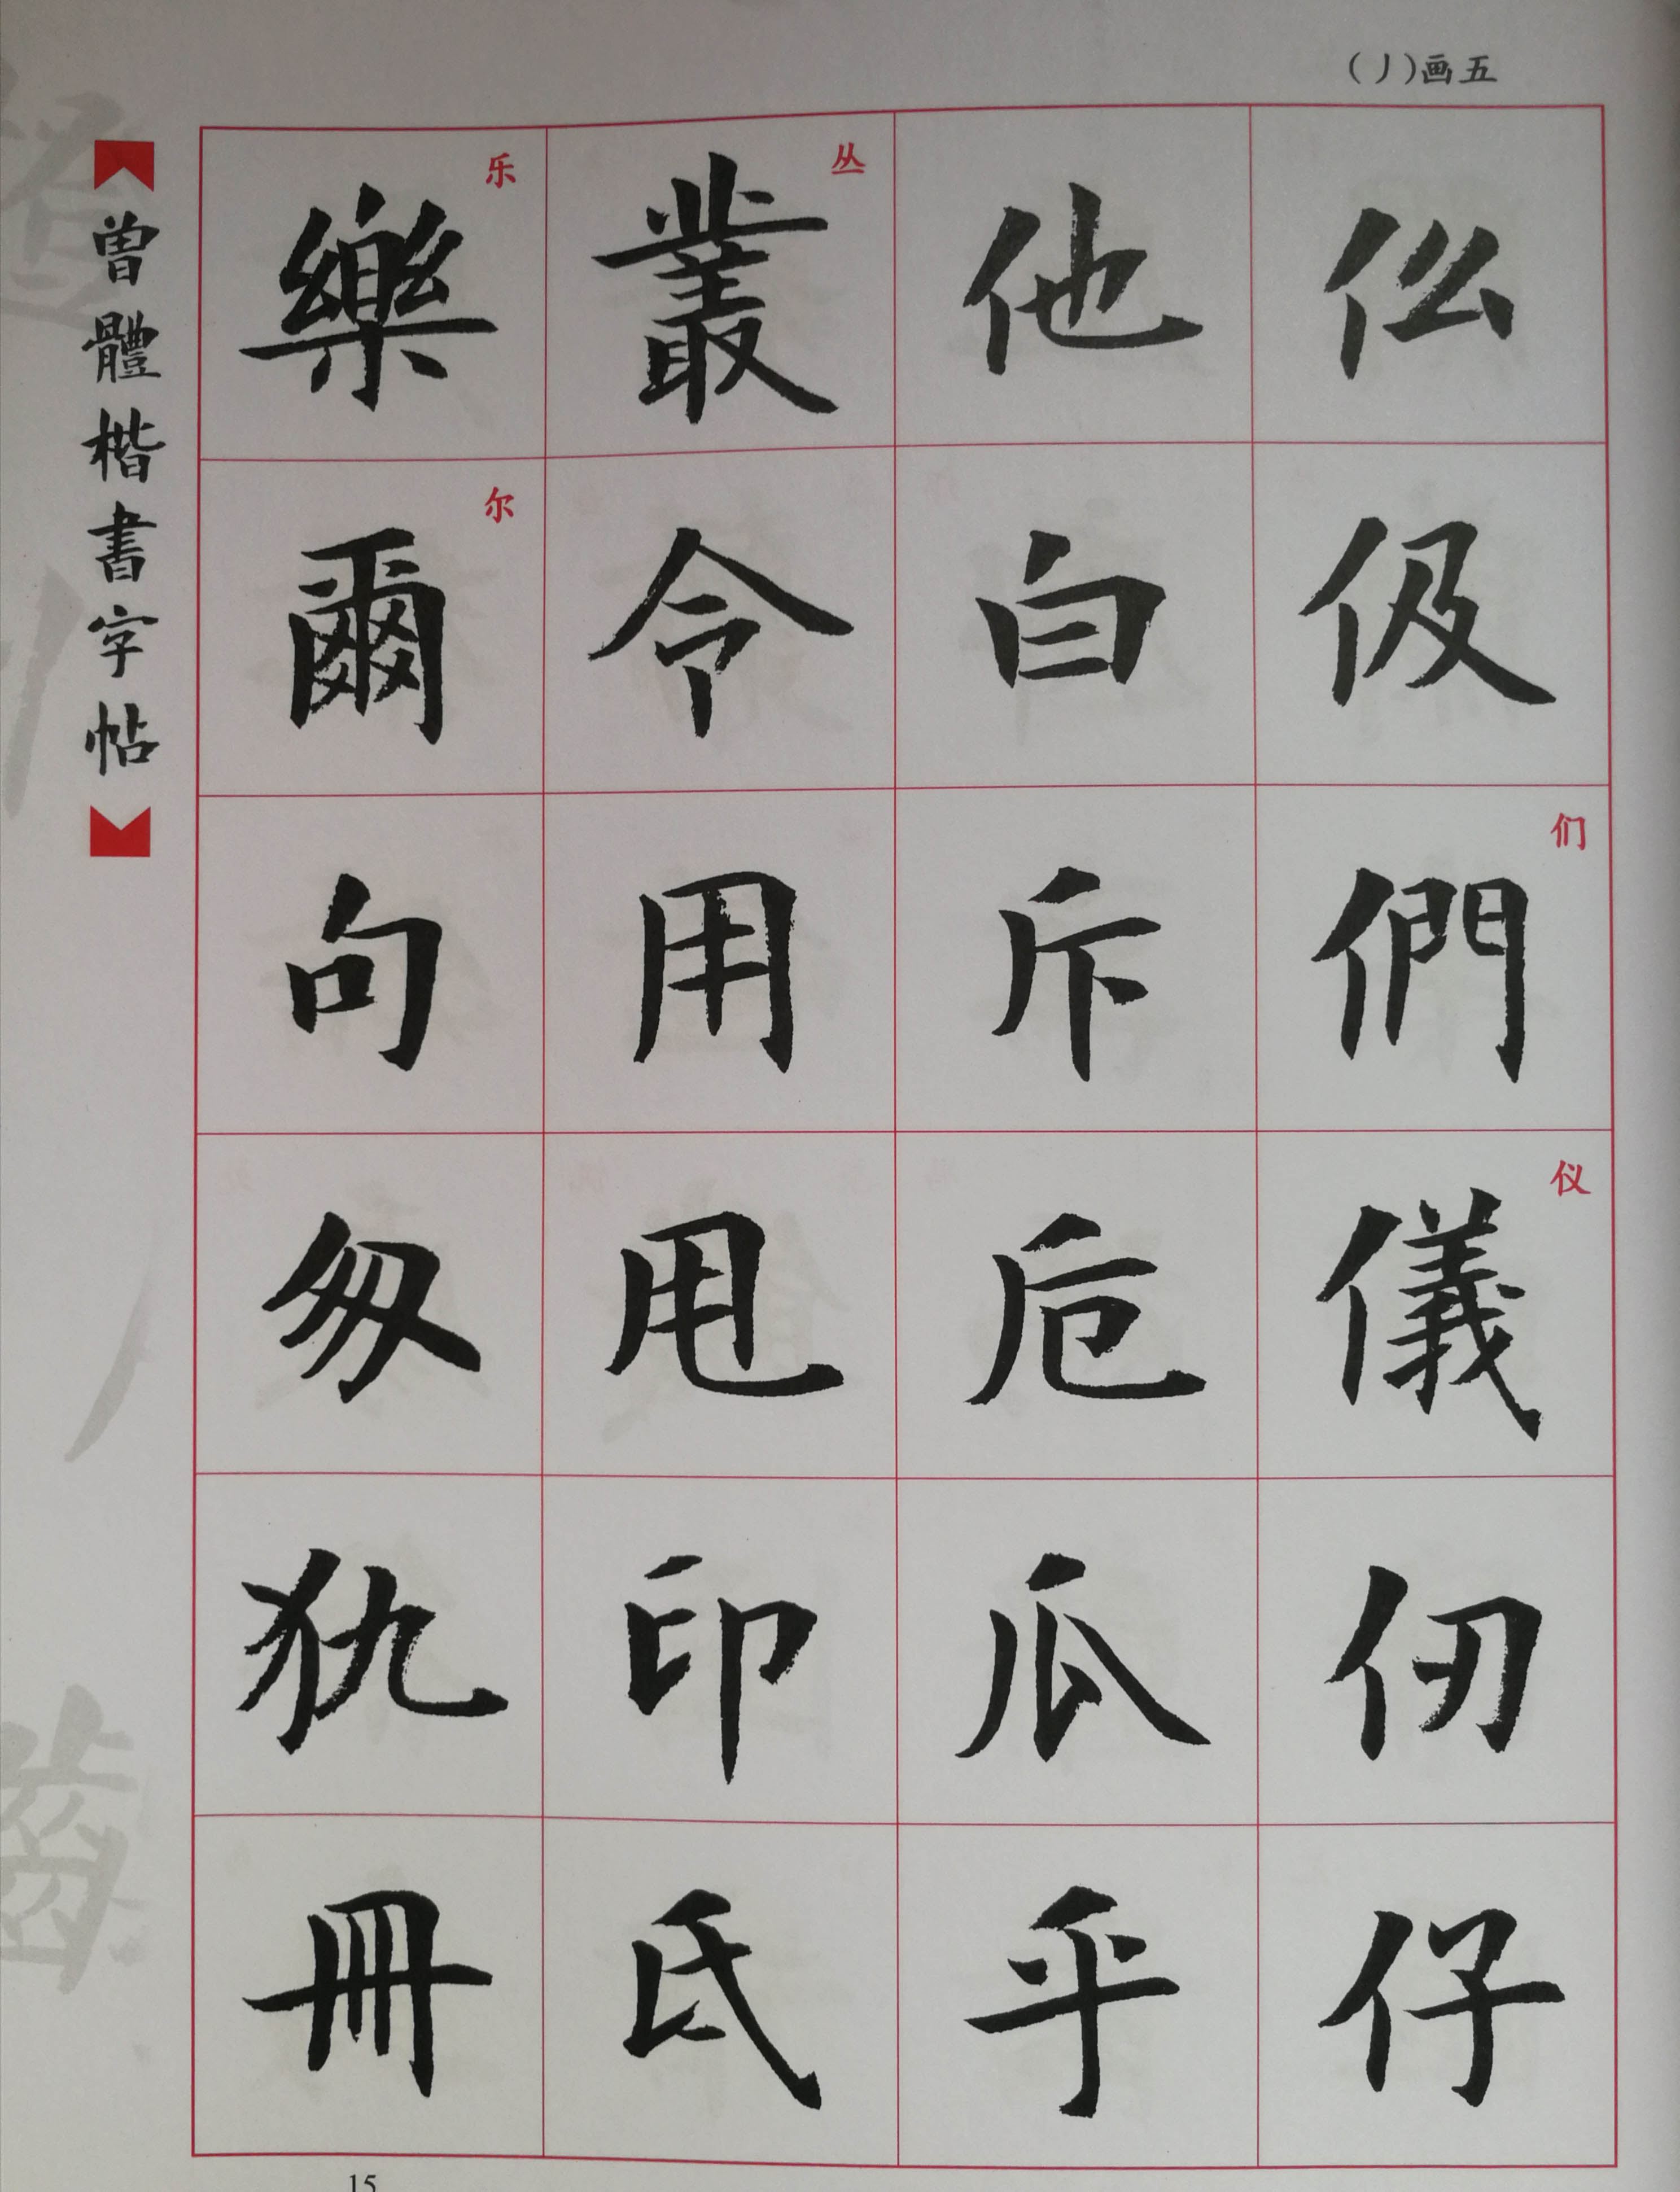 五画(丿)
仫
伋
们
們
仪
儀
仞
仔
他
白
斥
卮
瓜
乎
丛
叢
令
用
甩
印
氐
乐
樂
尔
爾
句
匆
犰
冊
曾體楷書字帖
15